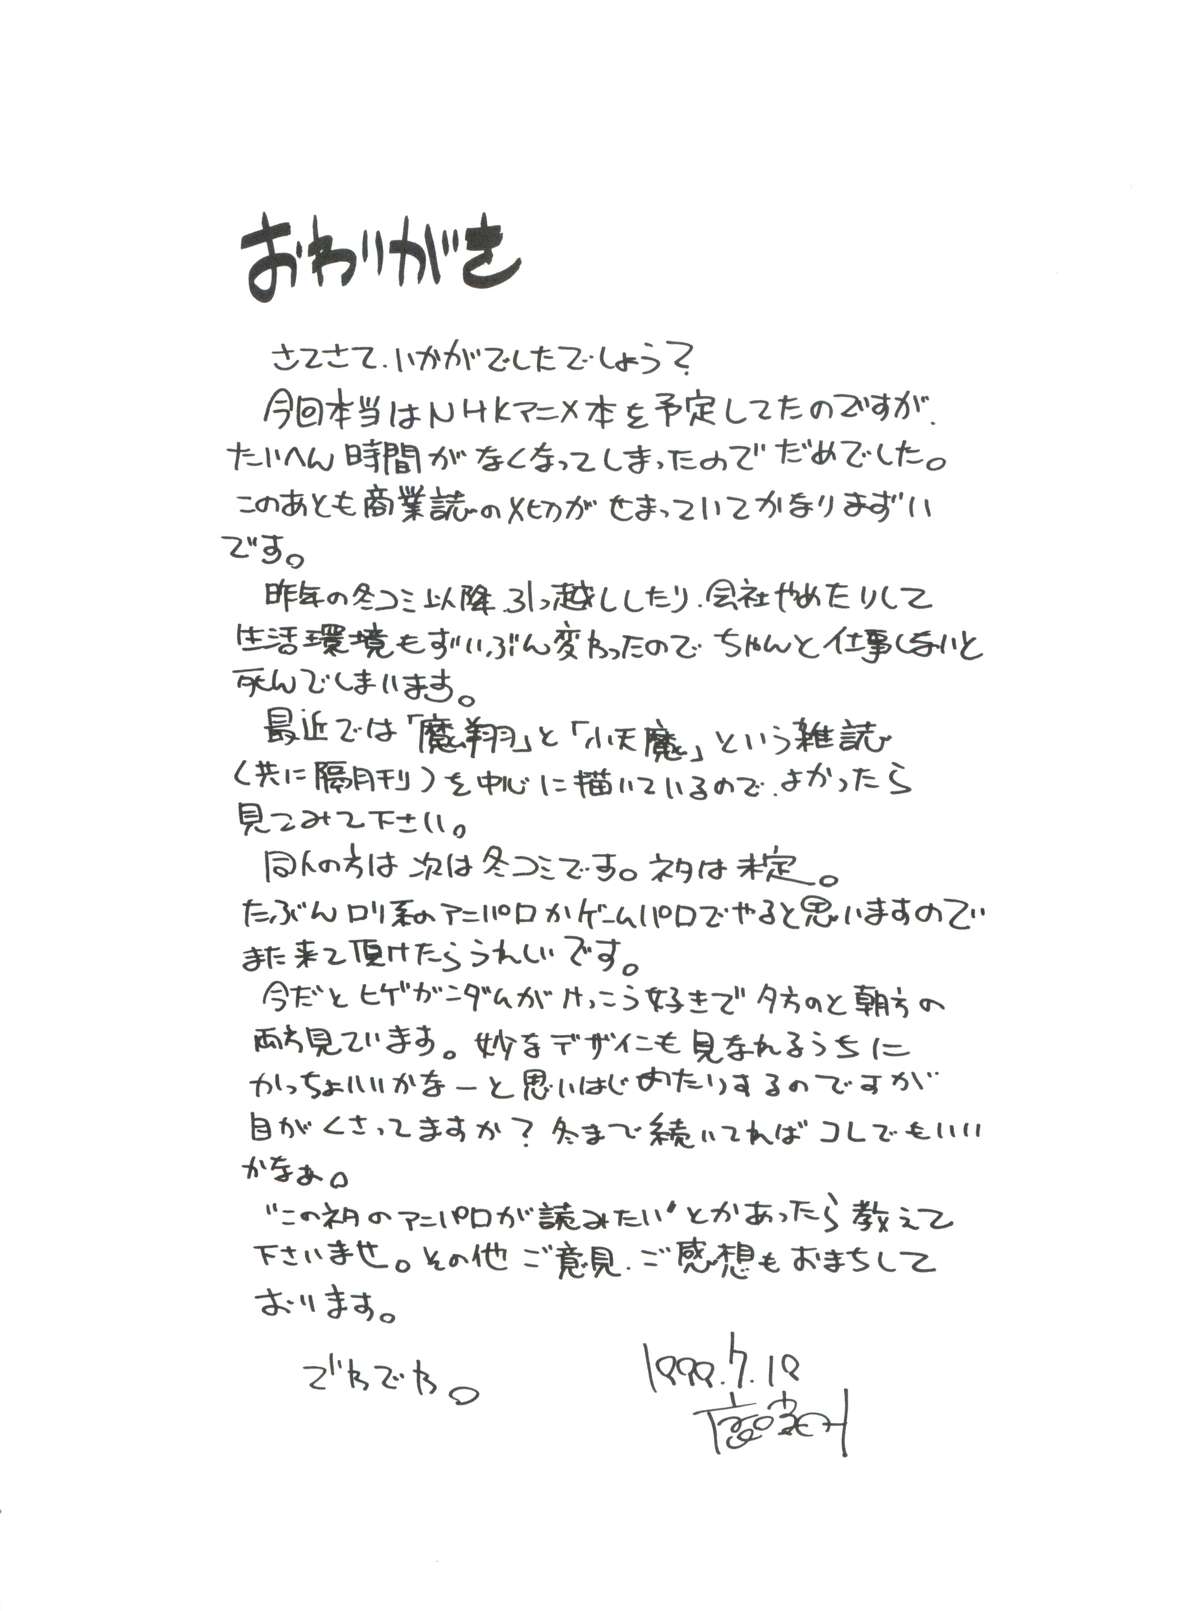 おわりがき
さてさて、いかがでしたでしょう?
今回本当はNHKアニメ本を予定してたのですが、
たいへん時間がなくなってしまったのでだめでした。
このあとも商業誌の〆切がせまっていてかなりまずい
です。
昨年の冬コミ以降、引っ越ししたり、会社やめたりして
生活環境もずいぶん変わったのでちゃんと仕事しないと
死んでしまいます。
最近では「魔翔」と「小天魔」という雑誌
(共に隔月刊)を中心に描いているので、よかったら
見てみて下さい。
同人の方は次は冬コミです。ネタは未定。
たぶんロリ系のアニパロかゲームパロでやると思いますので
また来て頂けたらうれしいです。
今だとヒゲガンダムがけっこう好きで夕方のと朝方の
両方見ています。妙なデザインも見なれるうちに
かっちょいいかなーと思いはじめたりするのですが
目がくさってますか?冬まで続いてればコレでもいい
かなぁ。
"このネタのアニパロが読みたい"とかあったら教えて
下さいませ。その他ご意見、ご感想もおまちして
おります。
でわでわ。
1999.7.18